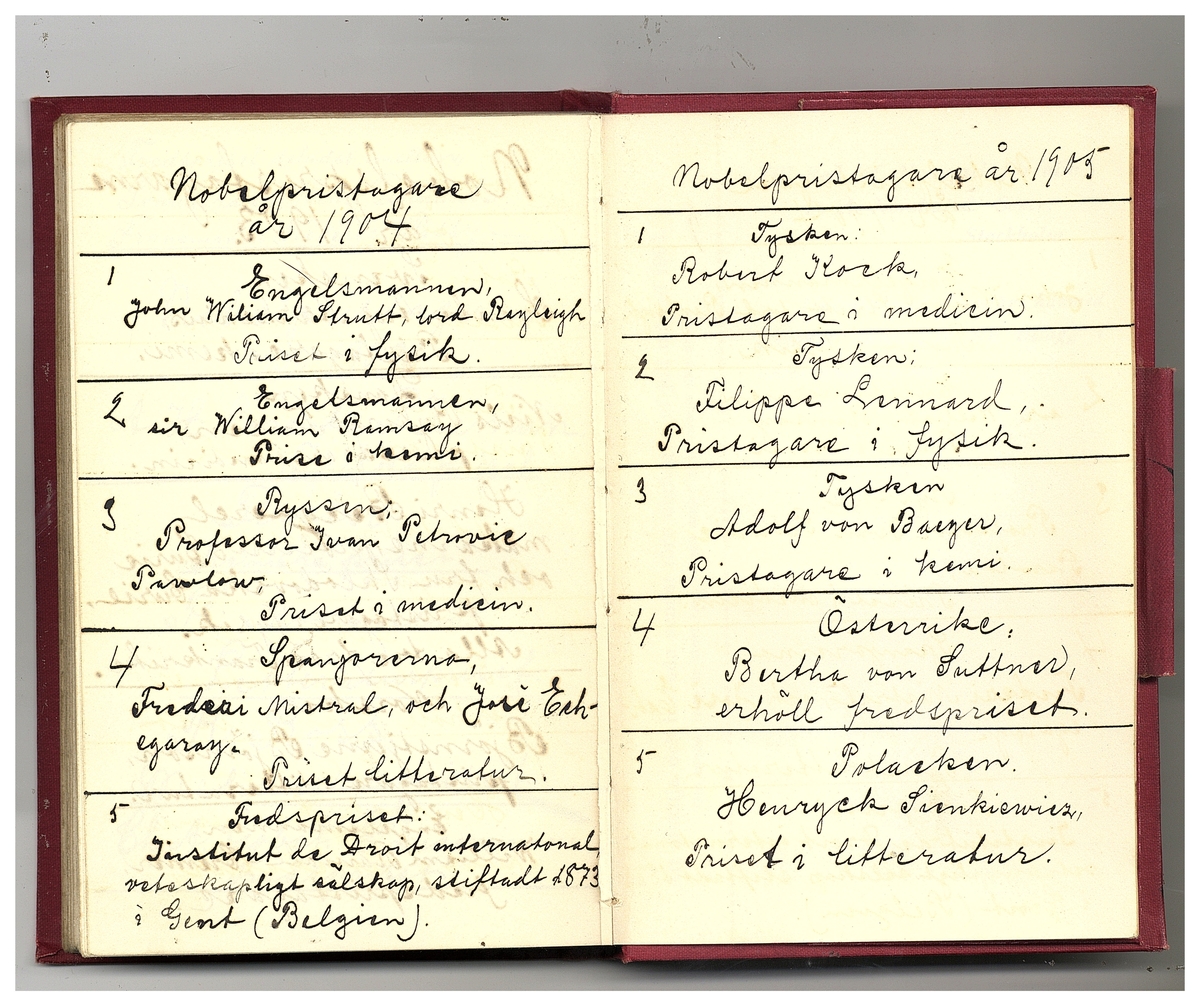 Nobelpristagare
år 1904
1 Engelsmannen,
John Wiliam Strutt, lord Rayleigh
Priset i fysik.
2 Engelsmannen,
sir William Ramsay
Prise i kemi.
3 Ryssen;
Professor Ivan Petrovic
Pavolow,
Priset i medicin.
4 Spanjorerna,
Frederi Mistral, och José Ech-
egaray.
Priset litteratur.
5 Fredspriset:
Institut de Droit international,
veteskapligt sälskap, stiftadt 1873
i Gent (Belgien).
Nobelpristagare år 1905
1 Tysken:
Robert Kock,
Pristagare i medicin.
2 Tysken;
Filippe Lennard,
Pristagare i fysik.
3 Tysken
Adolf von Baeyer,
Pristagare i kemi.
4 Österrike;
Bertha von Suttner,
erhöll fredspriset.
5 Polacken.
Henryck Sienkiewicz,
Priset i litteratur.